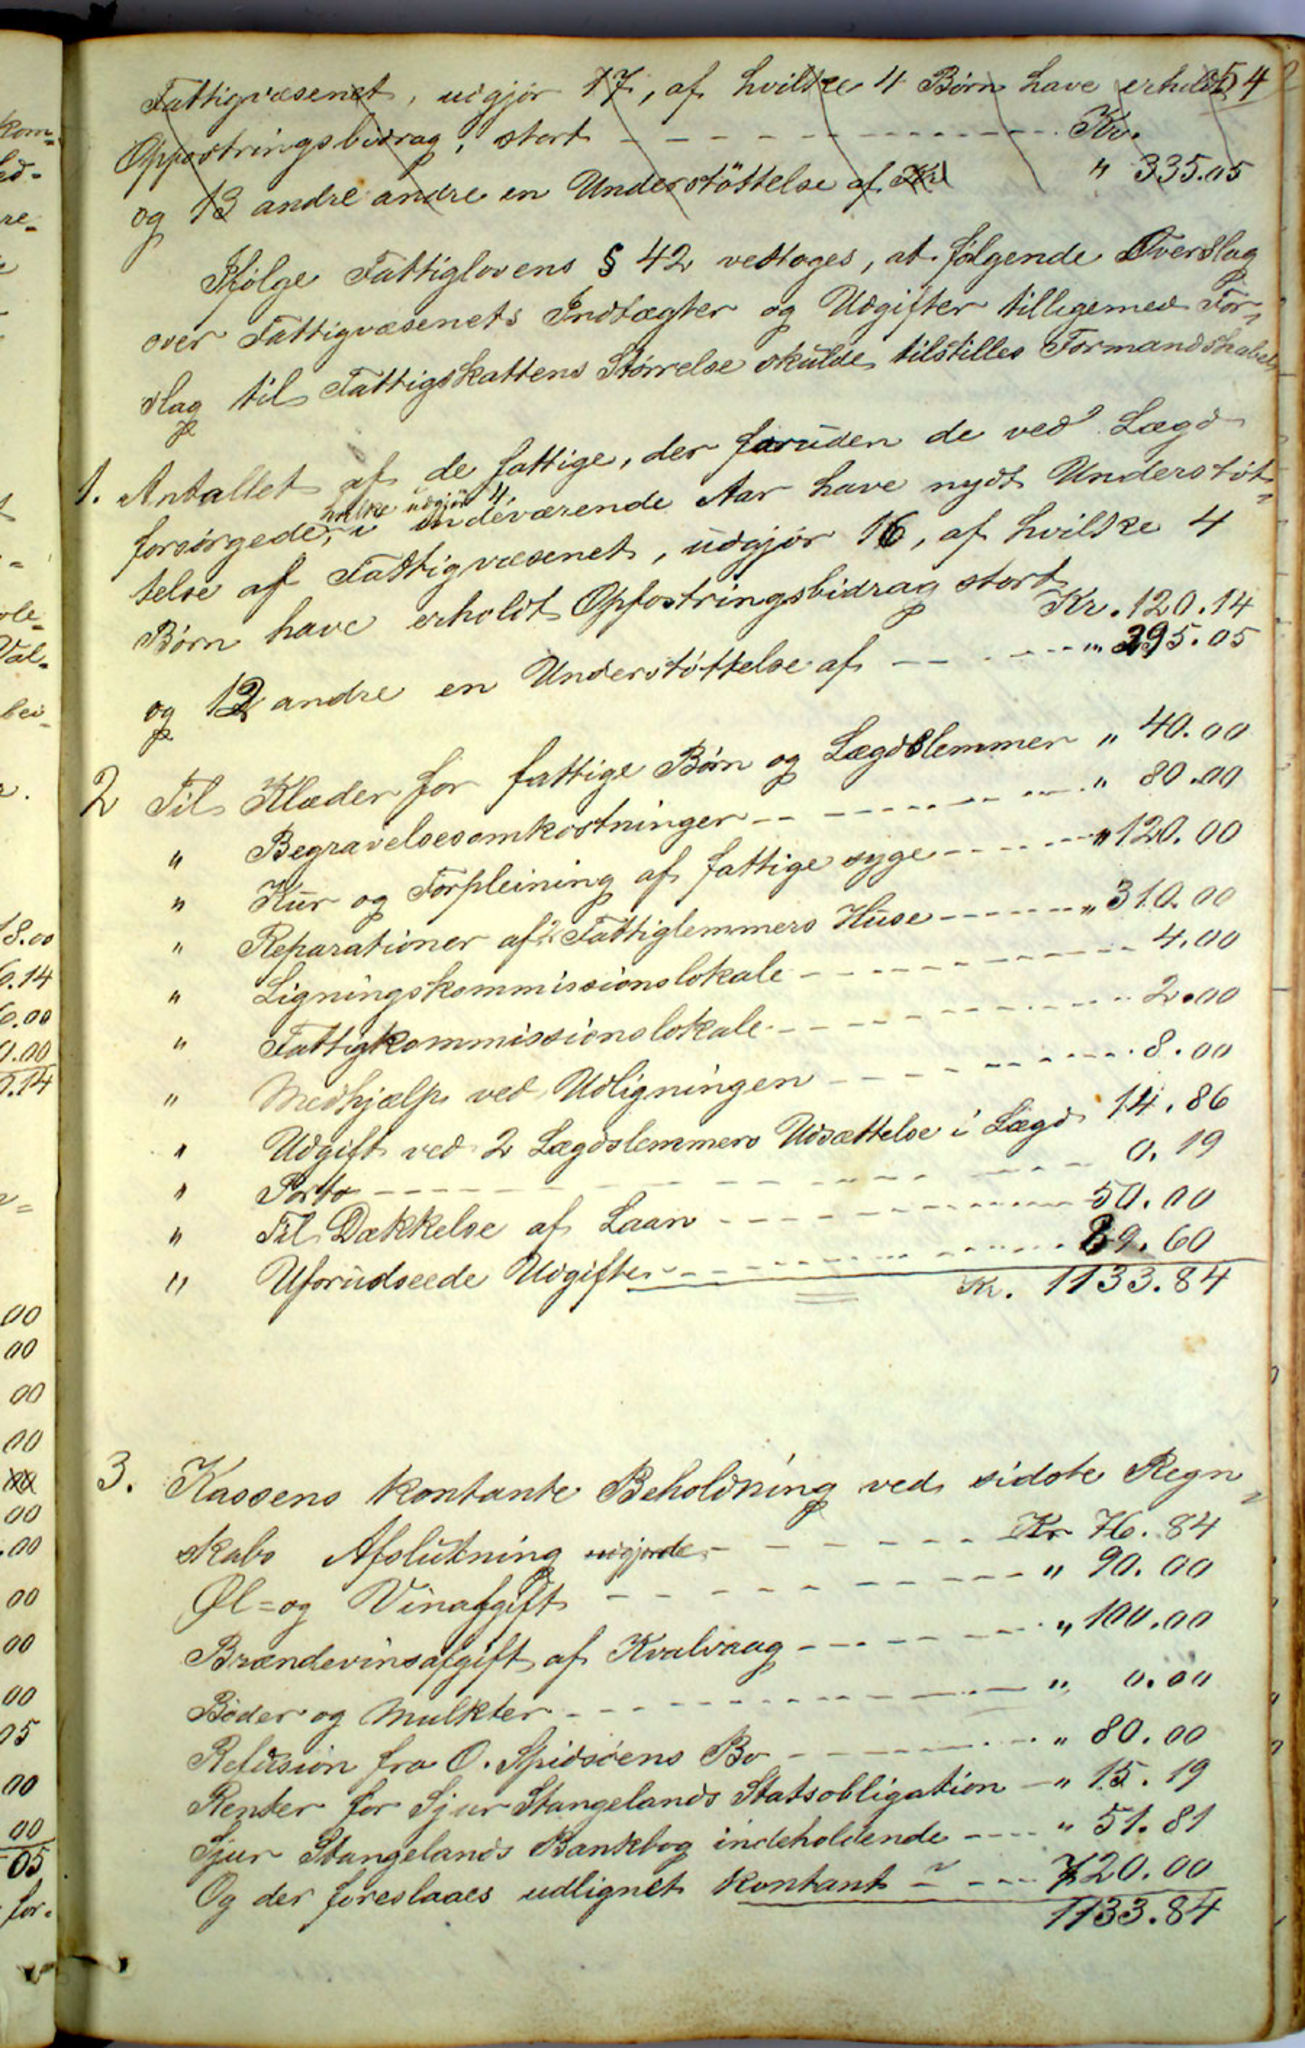 54
Fattigvæsenet, udgjør 17, af hvilke 4 Børn have erholdt
Opfostringsbidrag, stort - - - - - - Kr.
og 13 andre andre en Understøttelse af Kr " 335.05
Ifølge Fattiglovens § 42 vedtoges, at følgende Overslag
over Fattigvæsenets Indtægter og Udgifter tilligemed For-
slag til Fattigskattens Størrelse skulde tilstilles Formandskabet
1. Antallet af de fattige, der foruden de ved Lægd
forsørgede, hvilke udgjør 4, i indeværende Aar have nydt Understøt-
telse af Fattigvæsenet, udgjør 16, af hvilke 4
Børn have erholdt Opfostringsbidrag stort Kr. 120.14
og 12 andre en Understøttelse af - - - - " 295.05
2 Til Klæder for fattige Børn og Lægdslemmer " 40.00
" Begravelsesomkostninger - - - - " 80.00
" Kur og Forpleining af fattige syge - - - - " 120.00
" Reparationer af 2 Fattiglemmers Huse - - - - " 310.00
" Ligningskommissionslokale - - - - 4.00
" Fattigkommissionslokale - - - - 2.00
" Medhjælp ved Udligningen - - - - 8.00
" Udgift ved 2 Lægdslemmers Udsættelse i Lægd 14.86
" Porto - - - - 0.19
" Til Dækkelse af Laan - - - - 50.00
" Uforudseede Udgifter - - - - 89.60
Kr. 1133.84
3. Kassens kontante Beholdning ved sidste Regn-
skabs Afslutning udgjorde - - - - Kr 76.84
Øl- og Vinafgift - - - - " 90.00
Brændevinsafgift af Kvalvaag - - - - " 100.00
Bøder og Mulkter - - - - " 0.00
Refusion fra O. Spidsøens Bo - - - - " 80.00
Renter for Sjur Stangelands Statsobligation - " 15.19
Sjur Stangelands Bankbog indeholdende - - - - " 51.81
Og der foreslaaes udlignet kontant - - - - 720.00
1133.84